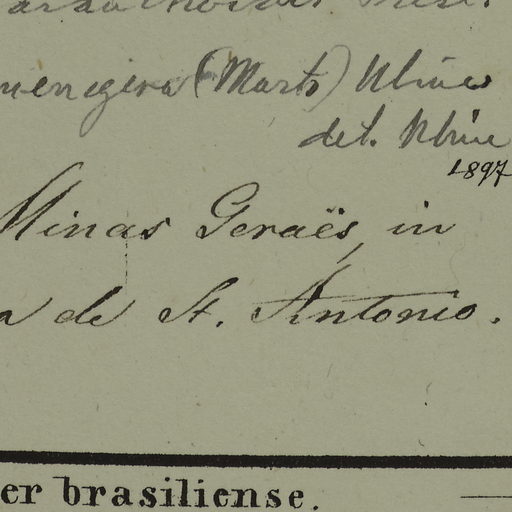 menegera (Marts) Uline
det. Uline
1897
Minas Geraës, in
a de St. Antonio.
er brasiliense.